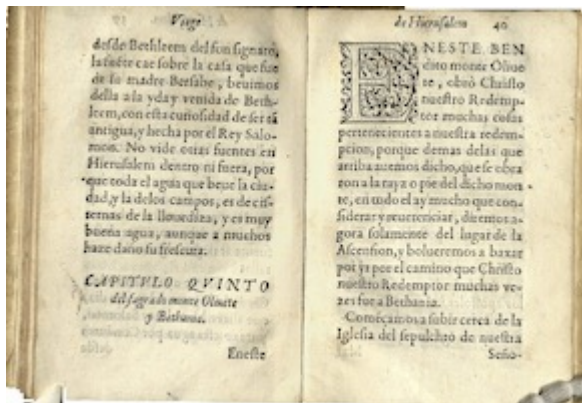 Viage
desde Bethleem del fon signato,
la fuẽte cae sobre la casa que fue
de la madre Bersabe, beuimos
della a la yda y venida de Beth-
leem, con esta curiosidad de ser tã
antigua, y hecha por el Rey Salo-
mon. No vide otras fuentes en
Hierusalem dentro ni fuera, por
que toda el agua que beue la ciu-
dad, y la delos campos, es de cis-
ternas de la llouediza, y es muy
buena agua, aunque a muchos
haze daño su frescura.
CAPITVLO QVINTO
del sagrado monte Oliuete
y Bethania.
Eneste
de Hierusalem 40
ENESTE BEN
dito monte Oliue
te, obrò Christo
nuestro Redemp-
tor muchas cosas
pertenecientes a nuestra redem-
pcion, porque demas delas que
arriba auemos dicho, que se obra
ron a la raya o pie del dicho mon
te, en todo el ay mucho que con-
siderar y reuerenciar, diremos a-
gora solamente del lugar de la
Ascension, y bolueremos a baxar
por ya por el camino que Christo
nuestro Redemptor muchas ve-
zes fue a Bethania.
Comẽcamos a subir cerca de la
Iglesia del sepulchro de nuestra
Seño-